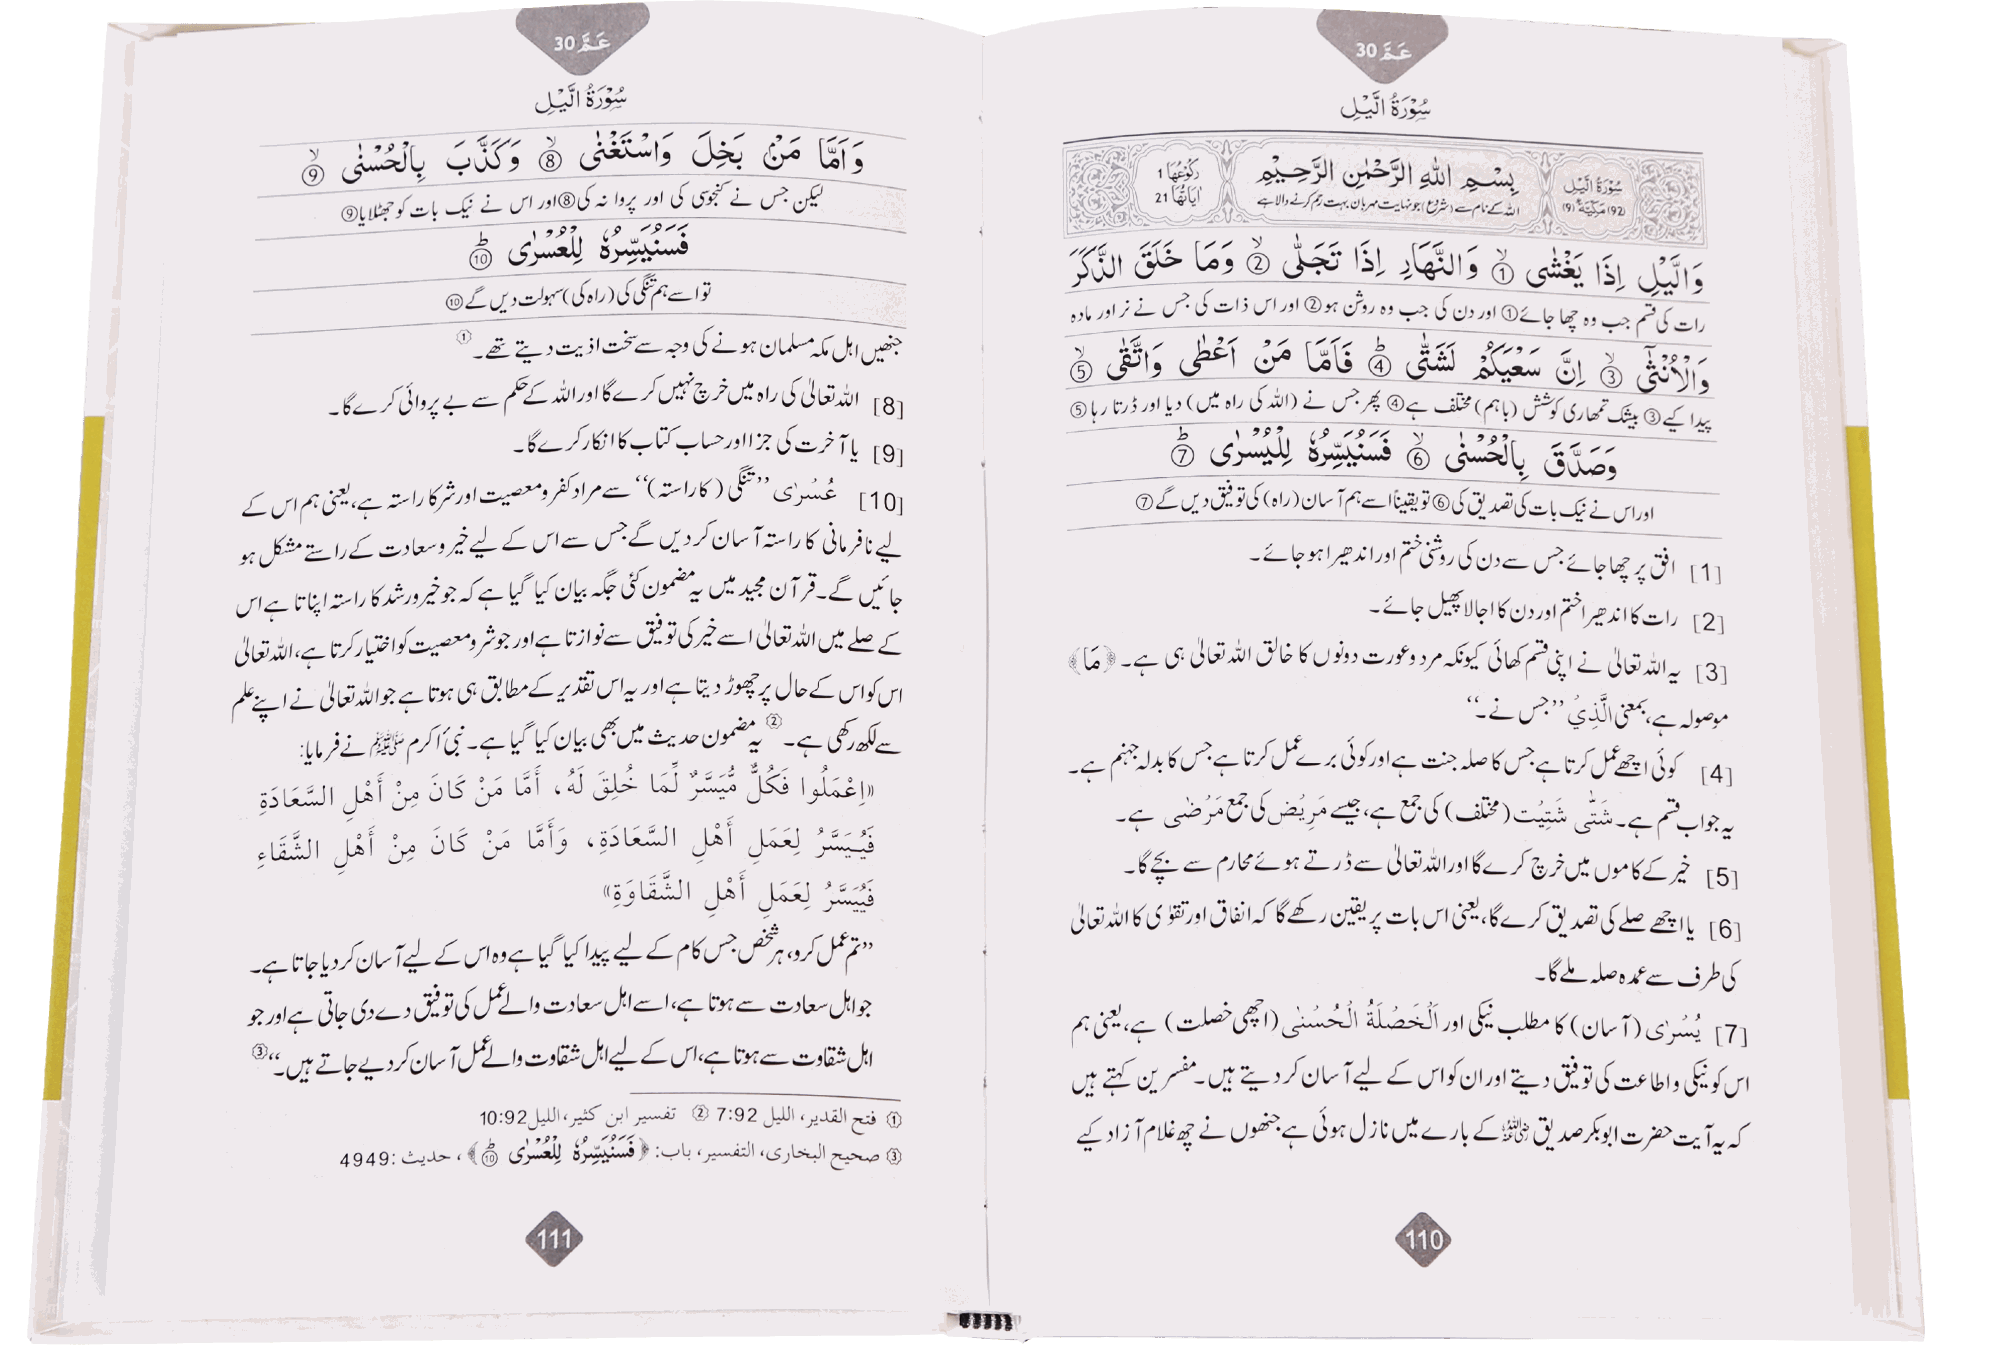 عَمَّ 30
سُوْرَةُ الَّيْلِ
سُوْرَةُ الَّيْلِ
(92) مَكِّيَّةٌ (9)
بِسْمِ اللّٰهِ الرَّحْمٰنِ الرَّحِيْمِ
اللہ کے نام سے (شروع) جو نہایت مہربان بہت رحم کرنے والا ہے
رُكُوْعُهَا 1
اٰيَاتُهَا 21
وَالَّيْلِ اِذَا يَغْشٰى ① وَالنَّهَارِ اِذَا تَجَلّٰى ② وَمَا خَلَقَ الذَّكَرَ
رات کی قسم جب وہ چھا جائے ① اور دن کی جب وہ روشن ہو ② اور اس ذات کی جس نے نر اور مادہ
وَالْاُنْثٰٓى ③ اِنَّ سَعْيَكُمْ لَشَتّٰى ④ فَاَمَّا مَنْ اَعْطٰى وَاتَّقٰى ⑤
پیدا کیے ③ بیشک تمھاری کوشش (باہم) مختلف ہے ④ پھر جس نے (اللہ کی راہ میں) دیا اور ڈرتا رہا ⑤
وَصَدَّقَ بِالْحُسْنٰى ⑥ فَسَنُيَسِّرُهٗ لِلْيُسْرٰى ⑦
اور اس نے نیک بات کی تصدیق کی ⑥ تو یقیناً اسے ہم آسان (راہ) کی توفیق دیں گے ⑦
[1] افق پر چھا جائے جس سے دن کی روشنی ختم اور اندھیرا ہو جائے۔
[2] رات کا اندھیرا ختم اور دن کا اجالا پھیل جائے۔
[3] یہ اللہ تعالیٰ نے اپنی قسم کھائی کیونکہ مرد و عورت دونوں کا خالق اللہ تعالیٰ ہی ہے۔ ﴿مَا﴾
موصولہ ہے، بمعنی الَّذِيْ ’’جس نے۔‘‘
[4] کوئی اچھے عمل کرتا ہے جس کا صلہ جنت ہے اور کوئی برے عمل کرتا ہے جس کا بدلہ جہنم ہے۔
یہ جواب قسم ہے۔ شَتّٰى شَتِيْت (مختلف) کی جمع ہے، جیسے مَرِيْض کی جمع مَرْضٰى ہے۔
[5] خیر کے کاموں میں خرچ کرے گا اور اللہ تعالیٰ سے ڈرتے ہوئے محارم سے بچے گا۔
[6] یا اچھے صلے کی تصدیق کرے گا، یعنی اس بات پر یقین رکھے گا کہ انفاق اور تقوٰی کا اللہ تعالیٰ
کی طرف سے عمدہ صلہ ملے گا۔
[7] يُسْرٰى (آسان) کا مطلب نیکی اور اَلْخَصْلَةُ الْحُسْنٰى (اچھی خصلت) ہے، یعنی ہم
اس کو نیکی و اطاعت کی توفیق دیتے اور ان کو اس کے لیے آسان کر دیتے ہیں۔ مفسرین کہتے ہیں
کہ یہ آیت حضرت ابوبکر صدیق رضی اللہ عنہ کے بارے میں نازل ہوئی ہے جنھوں نے چھ غلام آزاد کیے
110
عَمَّ 30
سُوْرَةُ الَّيْلِ
وَاَمَّا مَنْۢ بَخِلَ وَاسْتَغْنٰى ⑧ وَكَذَّبَ بِالْحُسْنٰى ⑨
لیکن جس نے کنجوسی کی اور پروا نہ کی ⑧ اور اس نے نیک بات کو جھٹلایا ⑨
فَسَنُيَسِّرُهٗ لِلْعُسْرٰى ⑩
تو اسے ہم تنگی کی (راہ کی) سہولت دیں گے ⑩
جنھیں اہل مکہ مسلمان ہونے کی وجہ سے سخت اذیت دیتے تھے۔ ①
[8] اللہ تعالیٰ کی راہ میں خرچ نہیں کرے گا اور اللہ کے حکم سے بے پروائی کرے گا۔
[9] یا آخرت کی جزا اور حساب کتاب کا انکار کرے گا۔
[10] عُسْرٰى ’’تنگی (کا راستہ)‘‘ سے مراد کفر و معصیت اور شر کا راستہ ہے، یعنی ہم اس کے
لیے نافرمانی کا راستہ آسان کر دیں گے جس سے اس کے لیے خیر و سعادت کے راستے مشکل ہو
جائیں گے۔ قرآن مجید میں یہ مضمون کئی جگہ بیان کیا گیا ہے کہ جو خیر و رشد کا راستہ اپناتا ہے اس
کے صلے میں اللہ تعالیٰ اسے خیر کی توفیق سے نوازتا ہے اور جو شر و معصیت کو اختیار کرتا ہے، اللہ تعالیٰ
اس کو اس کے حال پر چھوڑ دیتا ہے اور یہ اس تقدیر کے مطابق ہی ہوتا ہے جو اللہ تعالیٰ نے اپنے علم
سے لکھ رکھی ہے۔ ② یہ مضمون حدیث میں بھی بیان کیا گیا ہے۔ نبیٔ اکرم ﷺ نے فرمایا:
«اِعْمَلُوا فَكُلٌّ مُّيَسَّرٌ لِّمَا خُلِقَ لَهُ، أَمَّا مَنْ كَانَ مِنْ أَهْلِ السَّعَادَةِ
فَيُيَسَّرُ لِعَمَلِ أَهْلِ السَّعَادَةِ، وَأَمَّا مَنْ كَانَ مِنْ أَهْلِ الشَّقَاءِ
فَيُيَسَّرُ لِعَمَلِ أَهْلِ الشَّقَاوَةِ»
’’تم عمل کرو، ہر شخص جس کام کے لیے پیدا کیا گیا ہے وہ اس کے لیے آسان کر دیا جاتا ہے۔
جو اہل سعادت سے ہوتا ہے، اسے اہل سعادت والے عمل کی توفیق دے دی جاتی ہے اور جو
اہل شقاوت سے ہوتا ہے، اس کے لیے اہل شقاوت والے عمل آسان کر دیے جاتے ہیں۔‘‘ ③
① فتح القدیر، اللیل 7:92 ② تفسیر ابن کثیر، اللیل 10:92
③ صحیح البخاری، التفسیر، باب: ﴿فَسَنُيَسِّرُهٗ لِلْعُسْرٰى ⑩﴾، حدیث: 4949
111